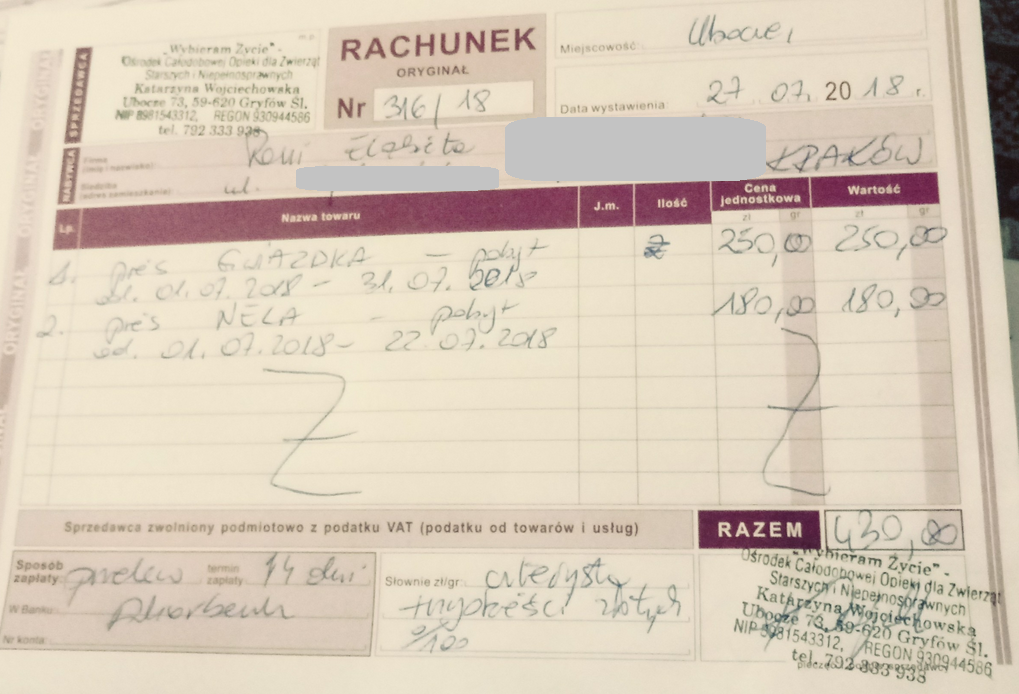 ORYGINAŁ
ORYGINAŁ
ORYGINAŁ
SPRZEDAWCA
m.p.
„Wybieram Życie" -
Ośrodek Całodobowej Opieki dla Zwierząt
Starszych i Niepełnosprawnych
Katarzyna Wojciechowska
Ubocze 73, 59-620 Gryfów Śl.
NIP 5981543312, REGON 930944586
tel. 792 333 938
RACHUNEK
ORYGINAŁ
Nr 316/18
Miejscowość:
Data wystawienia: 27 07. 2018 r.
NABYWCA
Firma
(imię i nazwisko):
Pani Elżbieta
KRAKÓW
Siedziba
(adres zamieszkania): ul.
Lp. Nazwa towaru J.m. Ilość Cena jednostkowa Wartość
zł gr zł gr
1. pies GWIAZDKA - pobyt 250,00 250,00
od. 01.07.2018 - 31.07.2018
2. pies NELA - pobyt 180,00 180,00
od. 01.07.2018 - 22.07.2018
Sprzedawca zwolniony podmiotowo z podatku VAT (podatku od towarów i usług)
RAZEM 430,00
Sposób zapłaty: przelew termin zapłaty: 14 dni
W Banku:
Nr konta:
Słownie zł/gr: czterysta
trzydzieści złotych
0/100
„Wybieram Życie" -
Ośrodek Całodobowej Opieki dla Zwierząt
Starszych i Niepełnosprawnych
Katarzyna Wojciechowska
Ubocze 73, 59-620 Gryfów Śl.
NIP 5981543312, REGON 930944586
tel. 792 333 938